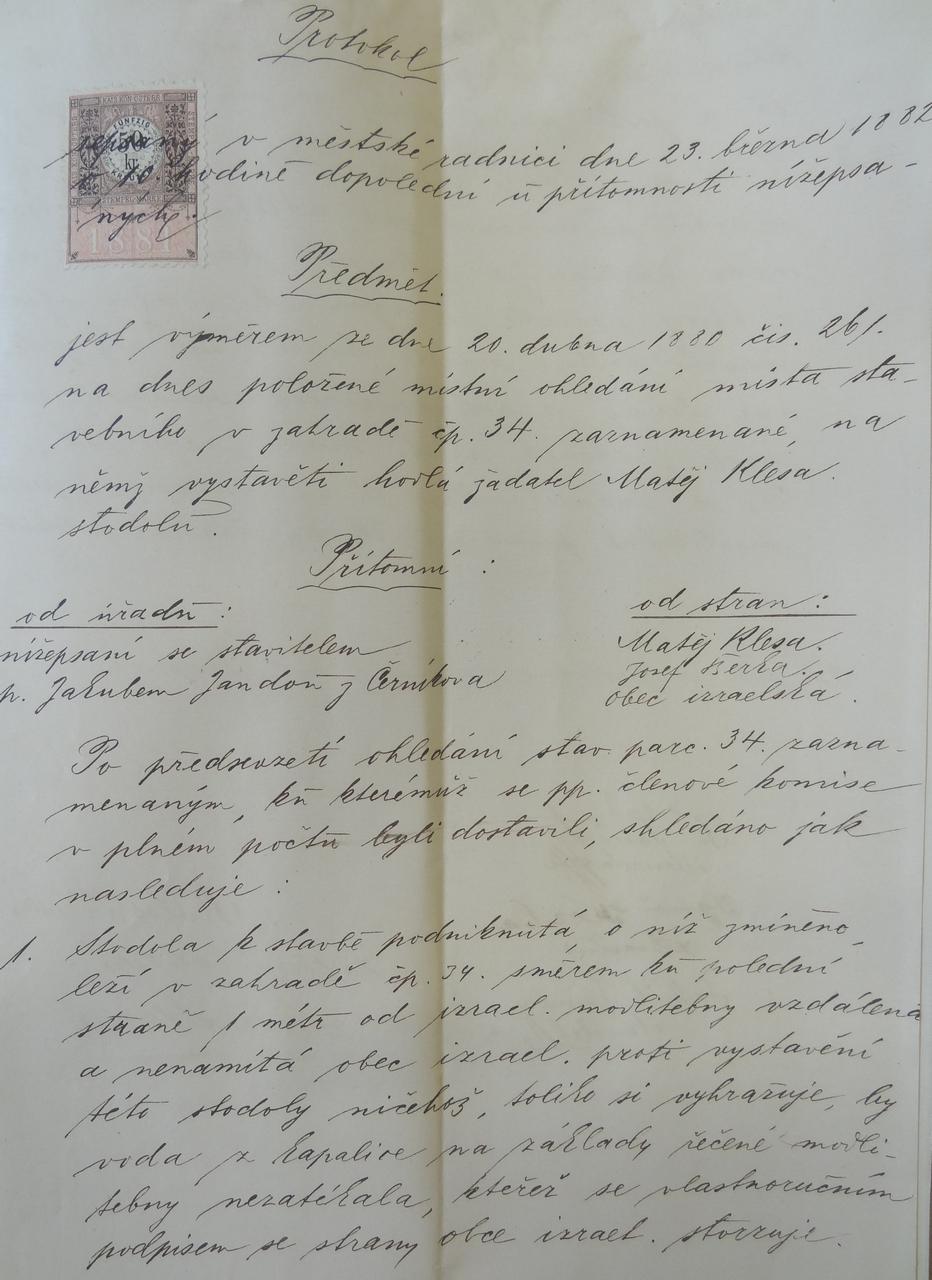 Protokol
KAIS. KÖN. ÖSTERR.
FÜNFZIG
50
kr.
STEMPEL-MARKE
1881
sepsaný v městské radnici dne 23. března 1882
o 10. hodině dopolední u přítomnosti nížepsa-
ných.
Předmět.
jest výměrem ze dne 20. dubna 1880 čís. 261.
na dnes položené místní ohledání místa sta-
vebního v zahradě čp. 34. zaznamenané, na
němž vystavěti hodlá žadatel Matěj Klesa.
stodolu.
Přítomní :
od úřadu :
od stran :
nížepsaní se stavitelem
p. Jakubem Jandou z Černíkova
Matěj Klesa.
Josef Berka.
obec izraelská.
Po předsevzetí ohledání stav. parc. 34. zazna-
menaným, ku kterémuž se pp. členové komise
v plném počtu byli dostavili, shledáno jak
nasleduje :
1. Stodola k stavbě podniknutá, o níž zmíněno,
leží v zahradě čp. 34. směrem ku polední
straně 1 métr od izrael. modlitebny vzdálená
a nenamítá obec izrael. proti vystavení
této stodoly ničehož, toliko si vyhražuje, by
voda z kapalice na základy řečené modli-
tebny nezatékala, kteřež se vlastnoručním
podpisem se strany obce izrael. stvrzuje.